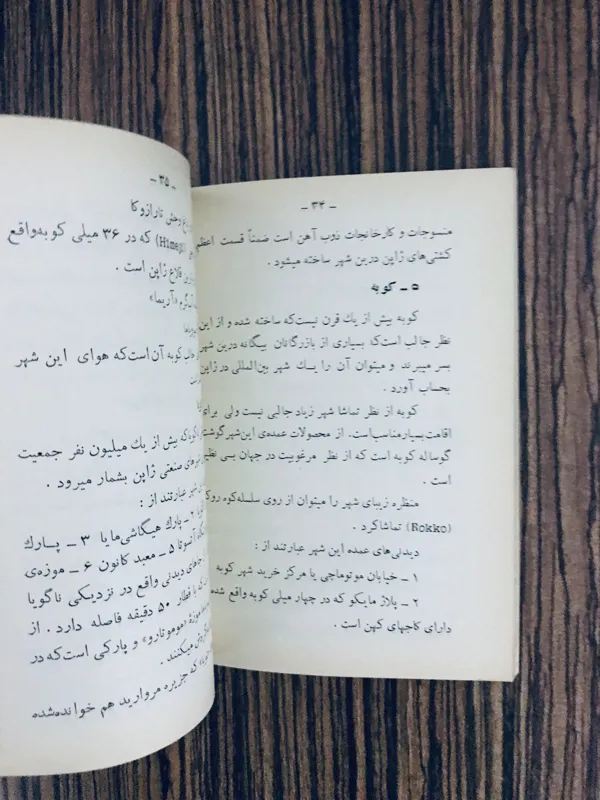 ـ ۳۴ ـ
منسوجات و کارخانجات ذوب آهن است ضمناً قسمت اعظم
کشتی‌های ژاپن درین شهر ساخته میشود .
۵ ـ کوبه
کوبه بیش از یك قرن نیست‌که ساخته شده و از این
نظر جالب است‌که بسیاری از بازرگانان بیگانه درین شهر
بسر میبرند و میتوان آن را یــك شهر بین‌المللی در ژاپن
بحساب آورد .
کوبه از نظر تماشا شهر زیاد جالبی نیست ولی برای
اقامت بسیار مناسب‌است. از محصولات عمده‌ی این‌شهر گوشت
گوساله کوبه است که از نظر مرغوبیت در جهان بی نظیر
است .
منظره زیبای شهر را میتوان از روی سلسله‌کوه روکو
(Rokko) تماشاکرد .
دیدنی‌های عمده این شهر عبارتند از :
۱ ـ خیابان موتوماچی یا مرکز خرید شهر کوبه
۲ ـ پلاژ مایکو که در چهار میلی کوبه واقع شده
دارای کاجهای کهن است .
ـ ۳۵ ـ
وحش تارازوکا
(Himeji) که در ۳۶ میلی کوبه‌واقع
قلاع ژاپن است .
«آریما»
کوبه آن‌است‌که هوای این شهر
بیش از یك میلیون نفر جمعیت
صنعتی ژاپن بشمار میرود .
عبارتند از :
۲ ـ پارك هیگاشی‌مایا ۳ ـ پــارك
۵ ـ معبد کانون ۶ ـ موزه‌ی
دیدنی واقع در نزدیکی ناگویا
قطار ۵۰ دقیقه فاصله دارد . از
موزه «موموتارو» و پارکی است‌که در
میکنند .
که جزیره مروارید هم خوانده‌شده